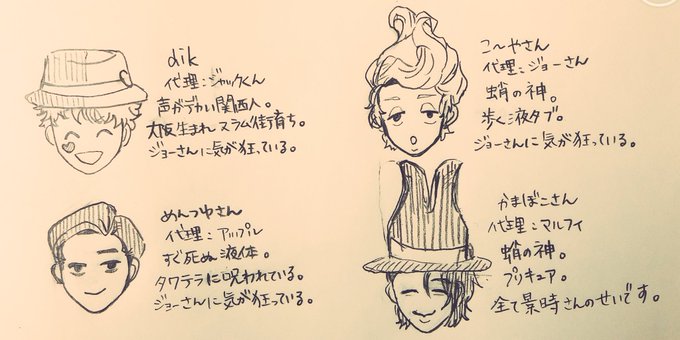 dik
代理：ジャックくん
声がデカい関西人。
大阪生まれスラム街育ち。
ジョーさんに気が狂っている。
こ〜やさん
代理：ジョーさん
蛸の神。
歩く液タブ。
ジョーさんに気が狂っている。
めんつゆさん
代理：アップル
すぐ死ぬ液体。
タワテラに呪われている。
ジョーさんに気が狂っている。
かまぼこさん
代理：マルフィ
蛸の神。
プリキュア。
全て景時さんのせいです。